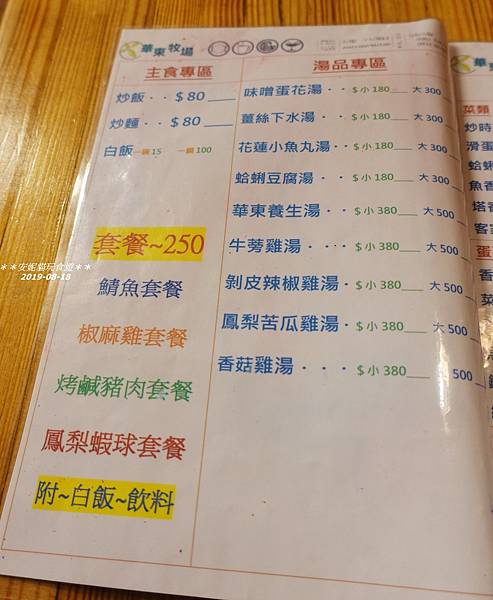 華東牧場
主食專區
炒飯・・＄80
炒麵・・＄80
白飯一碗15 一鍋100
套餐~250
鯖魚套餐
椒麻雞套餐
烤鹹豬肉套餐
鳳梨蝦球套餐
附~白飯~飲料
湯品專區
味噌蛋花湯・・＄小180___大300
薑絲下水湯・・＄小180___大300
花蓮小魚丸湯・・＄小180___大300
蛤蜊豆腐湯・・＄小180___大300
華東養生湯・・＄小380___大500
牛蒡雞湯・・・・＄小380___大500
剝皮辣椒雞湯・＄小380___大500
鳳梨苦瓜雞湯・＄小380___大500
香菇雞湯・・・＄小380___ 500
華東
菜類
炒時
滑蛋
蛤蜊
魚香
塔香
客家
蛋
香
菜
＊＊安妮貓玩食遊＊＊
2019-08-18